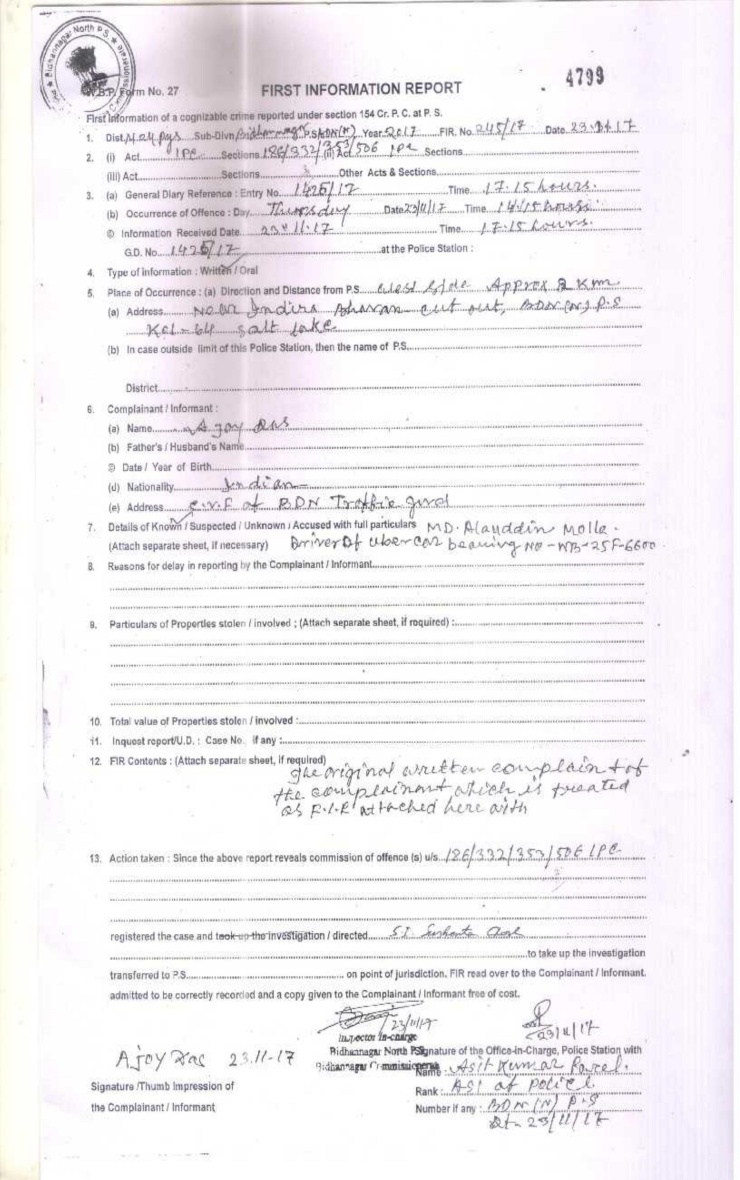 Bidhannagar North P.S.
4799
W.B.P. Form No. 27
FIRST INFORMATION REPORT
First Information of a cognizable crime reported under section 154 Cr. P. C. at P. S.
1. Dist. N. 24 pgs Sub-Divn. Bidhannagar P.S. BDN(N) Year 2017 FIR. No. 245/17 Date 23.11.17
2. (i) Act IPC Sections 186/332/353/506 IPC (ii) Act Sections
(iii) Act Sections Other Acts & Sections
3. (a) General Diary Reference : Entry No. 1425/17 Time 17.15 hours.
(b) Occurrence of Offence : Day Thursday Date 23/11/17 Time 14.15 hours
© Information Received Date 23.11.17 Time 17.15 hours.
G.D. No. 1425/17 at the Police Station :
4. Type of information : Written / Oral
5. Place of Occurrence : (a) Direction and Distance from P.S. West Side Approx 2 Km
(a) Address Near Indira Bhavan cut out, BDN (N) P.S
Kol-64 Salt Lake
(b) In case outside limit of this Police Station, then the name of P.S.
District
6. Complainant / Informant :
(a) Name Ajoy Das
(b) Father's / Husband's Name
© Date / Year of Birth
(d) Nationality Indian
(e) Address C.V.F of BDN Traffic gurd
7. Details of Known / Suspected / Unknown / Accused with full particulars MD. Alauddin Molla.
(Attach separate sheet, if necessary) Driver Of uber car bearing NO - WB-25F-6600
8. Reasons for delay in reporting by the Complainant / Informant
9. Particulars of Properties stolen / involved ; (Attach separate sheet, if required) :
10. Total value of Properties stolen / involved :
11. Inquest report/U.D. : Case No. if any :
12. FIR Contents : (Attach separate sheet, if required)
The original written complaint of
the complainant which is treated
as F.I.R attached here with
13. Action taken : Since the above report reveals commission of offence (s) u/s. 186/332/353/506 IPC
registered the case and took up the investigation / directed S.I.
to take up the investigation
transferred to P.S. on point of jurisdiction. FIR read over to the Complainant / Informant.
admitted to be correctly recorded and a copy given to the Complainant / Informant free of cost.
23/11/17
23/11/17
Inspector In-charge
Bidhannagar North P.S. Signature of the Office-in-Charge, Police Station with
Ajoy Das 23.11-17
Bidhannagar Commissionerate Name : Asit Kumar Parcel.
Signature /Thumb Impression of
Rank : ASI of police.
the Complainant / Informant
Number if any : BDN (N) P.S
Dt- 23/11/17